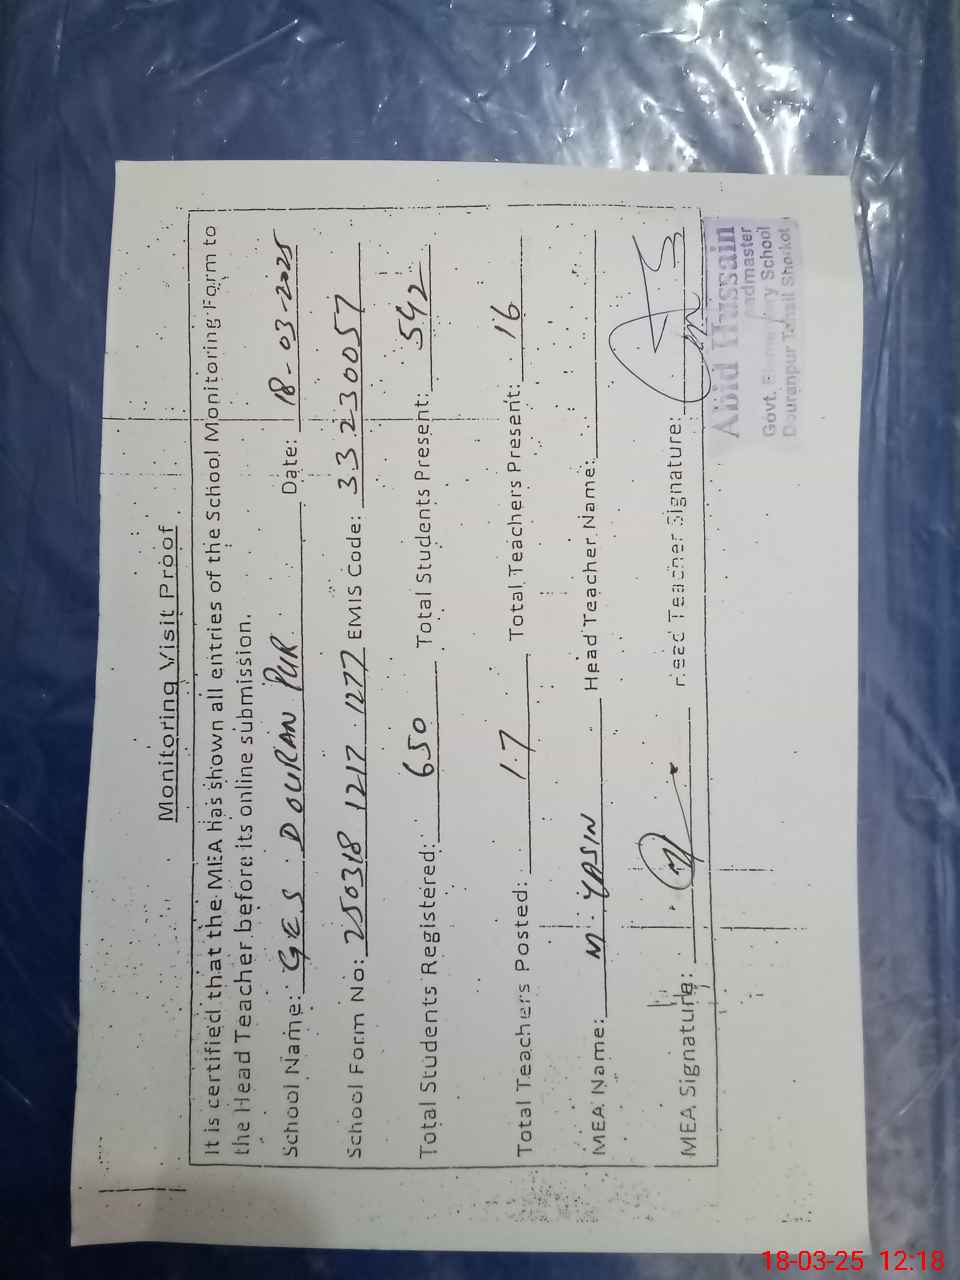 Monitoring Visit Proof
It is certified that the MEA has shown all entries of the School Monitoring Form to
the Head Teacher before its online submission.
School Name: GES DOURAN PUR Date: 18-03-2025
School Form No: 250318 1217 1277 EMIS Code: 33230057
Total Students Registered: 650 Total Students Present: 542
Total Teachers Posted: 17 Total Teachers Present: 16
MEA Name: M. YASIN Head Teacher Name:
MEA Signature: Head Teacher Signature:
Abid Hussain
Headmaster
Govt. Elementary School
Douranpur Tehsil Shorkot
18-03-25 12:18